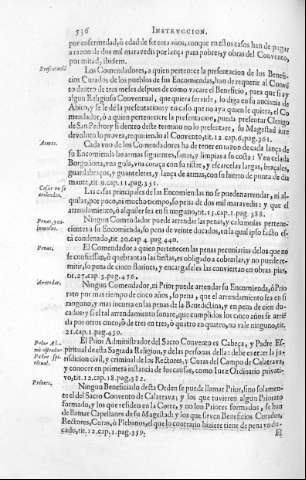 536 INSTRVCCION.
por enfermedad, ò edad de setenta años, aunque en ellos casos han de pagar
a razon de dos mil maravedis por lança para pobres, y obras del Convento,
por mitad, ibidem.
Los Comendadores, a quien pertenece la presentacion de los Benefi-
cios Curados de los pueblos de sus Encomiendas, han de dar
dentro de tres meses despues de como vacare el Beneficio, para que si ay
algun Religioso Conventual, que quiera servirle, lo diga en su ausencia de
Abito, y se le dè la presentacion; y en caso que no aya quien le quiera, el Co-
mendador, ò a quien perteneciere la presentacion, pueda presentar Clerigo
de San Pedro; y si dentro deste termino no lo presentare, su Magestad iure
devoluto lo provee, poniendolo el Convento, tit. 12. cap. 6. pag. 361.
Armas.
Cada vno de los Comendadores ha de tener en razon de cada lança de
su Encomienda las armas siguientes, sanas, y limpias a su costa: Vna celada
Borgoñona, vna gola, vna coraça con su ristre, y escarcelas largas, braçales,
guardabraços, y guanteletes, y lança de armas, con su hierro de punta de dia
mante, tit. 9. cap. 11. pag. 351.
Casas no se
Las casas principales de las Encomiendas no se pueden arrendar, ni al-
quilar, por poco, ni mucho tiempo, so pena de dos mil maravedis: y que el
arrendamiento, ò alquiler sea en si ninguno, tit. 15. cap. 11. pag. 388.
Ningun Comendador puede arrendar las penas, y calumnias pertene-
cientes a su Encomienda, so pena de veinte ducados, en la qual ipso facto es-
tà condenado, tit. 20. cap. 4. pag. 440.
Penas.
El Comendador a quien pertenecen las penas pecuniarias de los que no
se confiessan, ò quebrantan las fiestas, es obligado a cobrarlas, y no puede re-
mitir, so pena de cinco florines, y encargasele las conviertan en obras pias,
tit. 27. cap. 5. pag. 476.
Arrendar.
Ningun Comendador, ni Prior puede arrendar su Encomienda, ò Prio
rato por mas tiempo de cinco años, so pena, que el arrendamiento sea en sì
ninguno, y mas incurren en las penas de la Benedictina, y en pena de cien du-
cados; y si el tal arrendamiento sonare, que cumplidos los cinco años se arrie
da por otros cinco, ò de tres en tres, ò quatro en quatro, no vale ninguno, tit.
21. cap. 1. pag. 450.
El Prior Administrador del Sacro Convento es Cabeça, y Padre Es-
piritual de esta Sagrada Religion, y de las personas della: debe exercer la ju-
risdiccion civil, y criminal de los Rectores, y Curas del Campo de Calatrava,
y conocer en primera instancia de sus causas, como Iuez Ordinario privati-
vo, tit. 12. cap. 18. pag. 382.
Priores.
Ningun Beneficiado desta Orden se puede llamar Prior, sino solamen-
te el del Sacro Convento de Calatrava; y los que tuvieren algun Priorato
formado, y los que residen en la Corte, y no son Priores formados, se han
de llamar Capellanes de su Magestad: y los que sirven Beneficios Curados,
Rectores, Curas, ò Plebanos; el que lo contrario hiziere tiene de pena vn du-
cado, tit. 12. cap. 1. pag. 359.
El